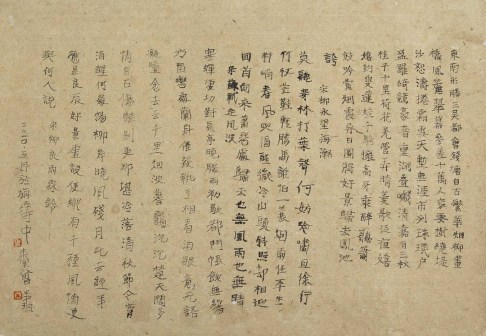 東南形勝三吴都會錢塘自古繁華烟柳畫
橋風簾翠幕參差十萬人家雲樹繞堤
沙怒濤捲霜雪天塹無涯市列珠璣户
盈羅綺競豪奢重湖疊巘清嘉有三秋
桂子十里荷花羌管弄晴菱歌泛夜嬉
嬉釣叟蓮娃千騎擁高牙乘醉聽簫
鼓吟賞烟霞异日圖將好景歸去鳳池
誇 宋柳永望海潮
莫聽穿林打葉聲何妨吟嘯且徐行
竹杖芒鞋輕勝馬誰怕一蓑烟雨任平生
料峭春風吹酒醒微冷山頭斜照却相迎
回首向來蕭瑟處歸去也無風雨也無晴
宋蘇軾定風波
切對長亭晚驟雨初歇都門帳飲無緒
方留戀處蘭舟催發執手相看淚眼竟無語
凝噎念去去千里烟波暮靄沉沉楚天闊多
情自古傷離别更那堪冷落清秋節今宵
酒醒何處楊柳岸曉風殘月此去經年
應是良辰好景虛設便縱有千種風情更
與何人說 宋柳永雨霖鈴
二〇一五年